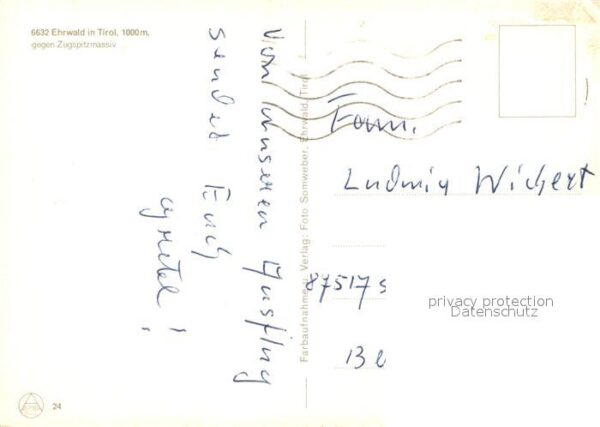 6632 Ehrwald in Tirol, 1000 m,
gegen Zugspitzmassiv
Von unserem Ausflug
sendet
Euch
Farbaufnahme u. Verlag: Foto Somweber, Ehrwald, Tirol
Fam.
Ludwig Wichert
87517 s
Be
privacy protection
Datenschutz
24